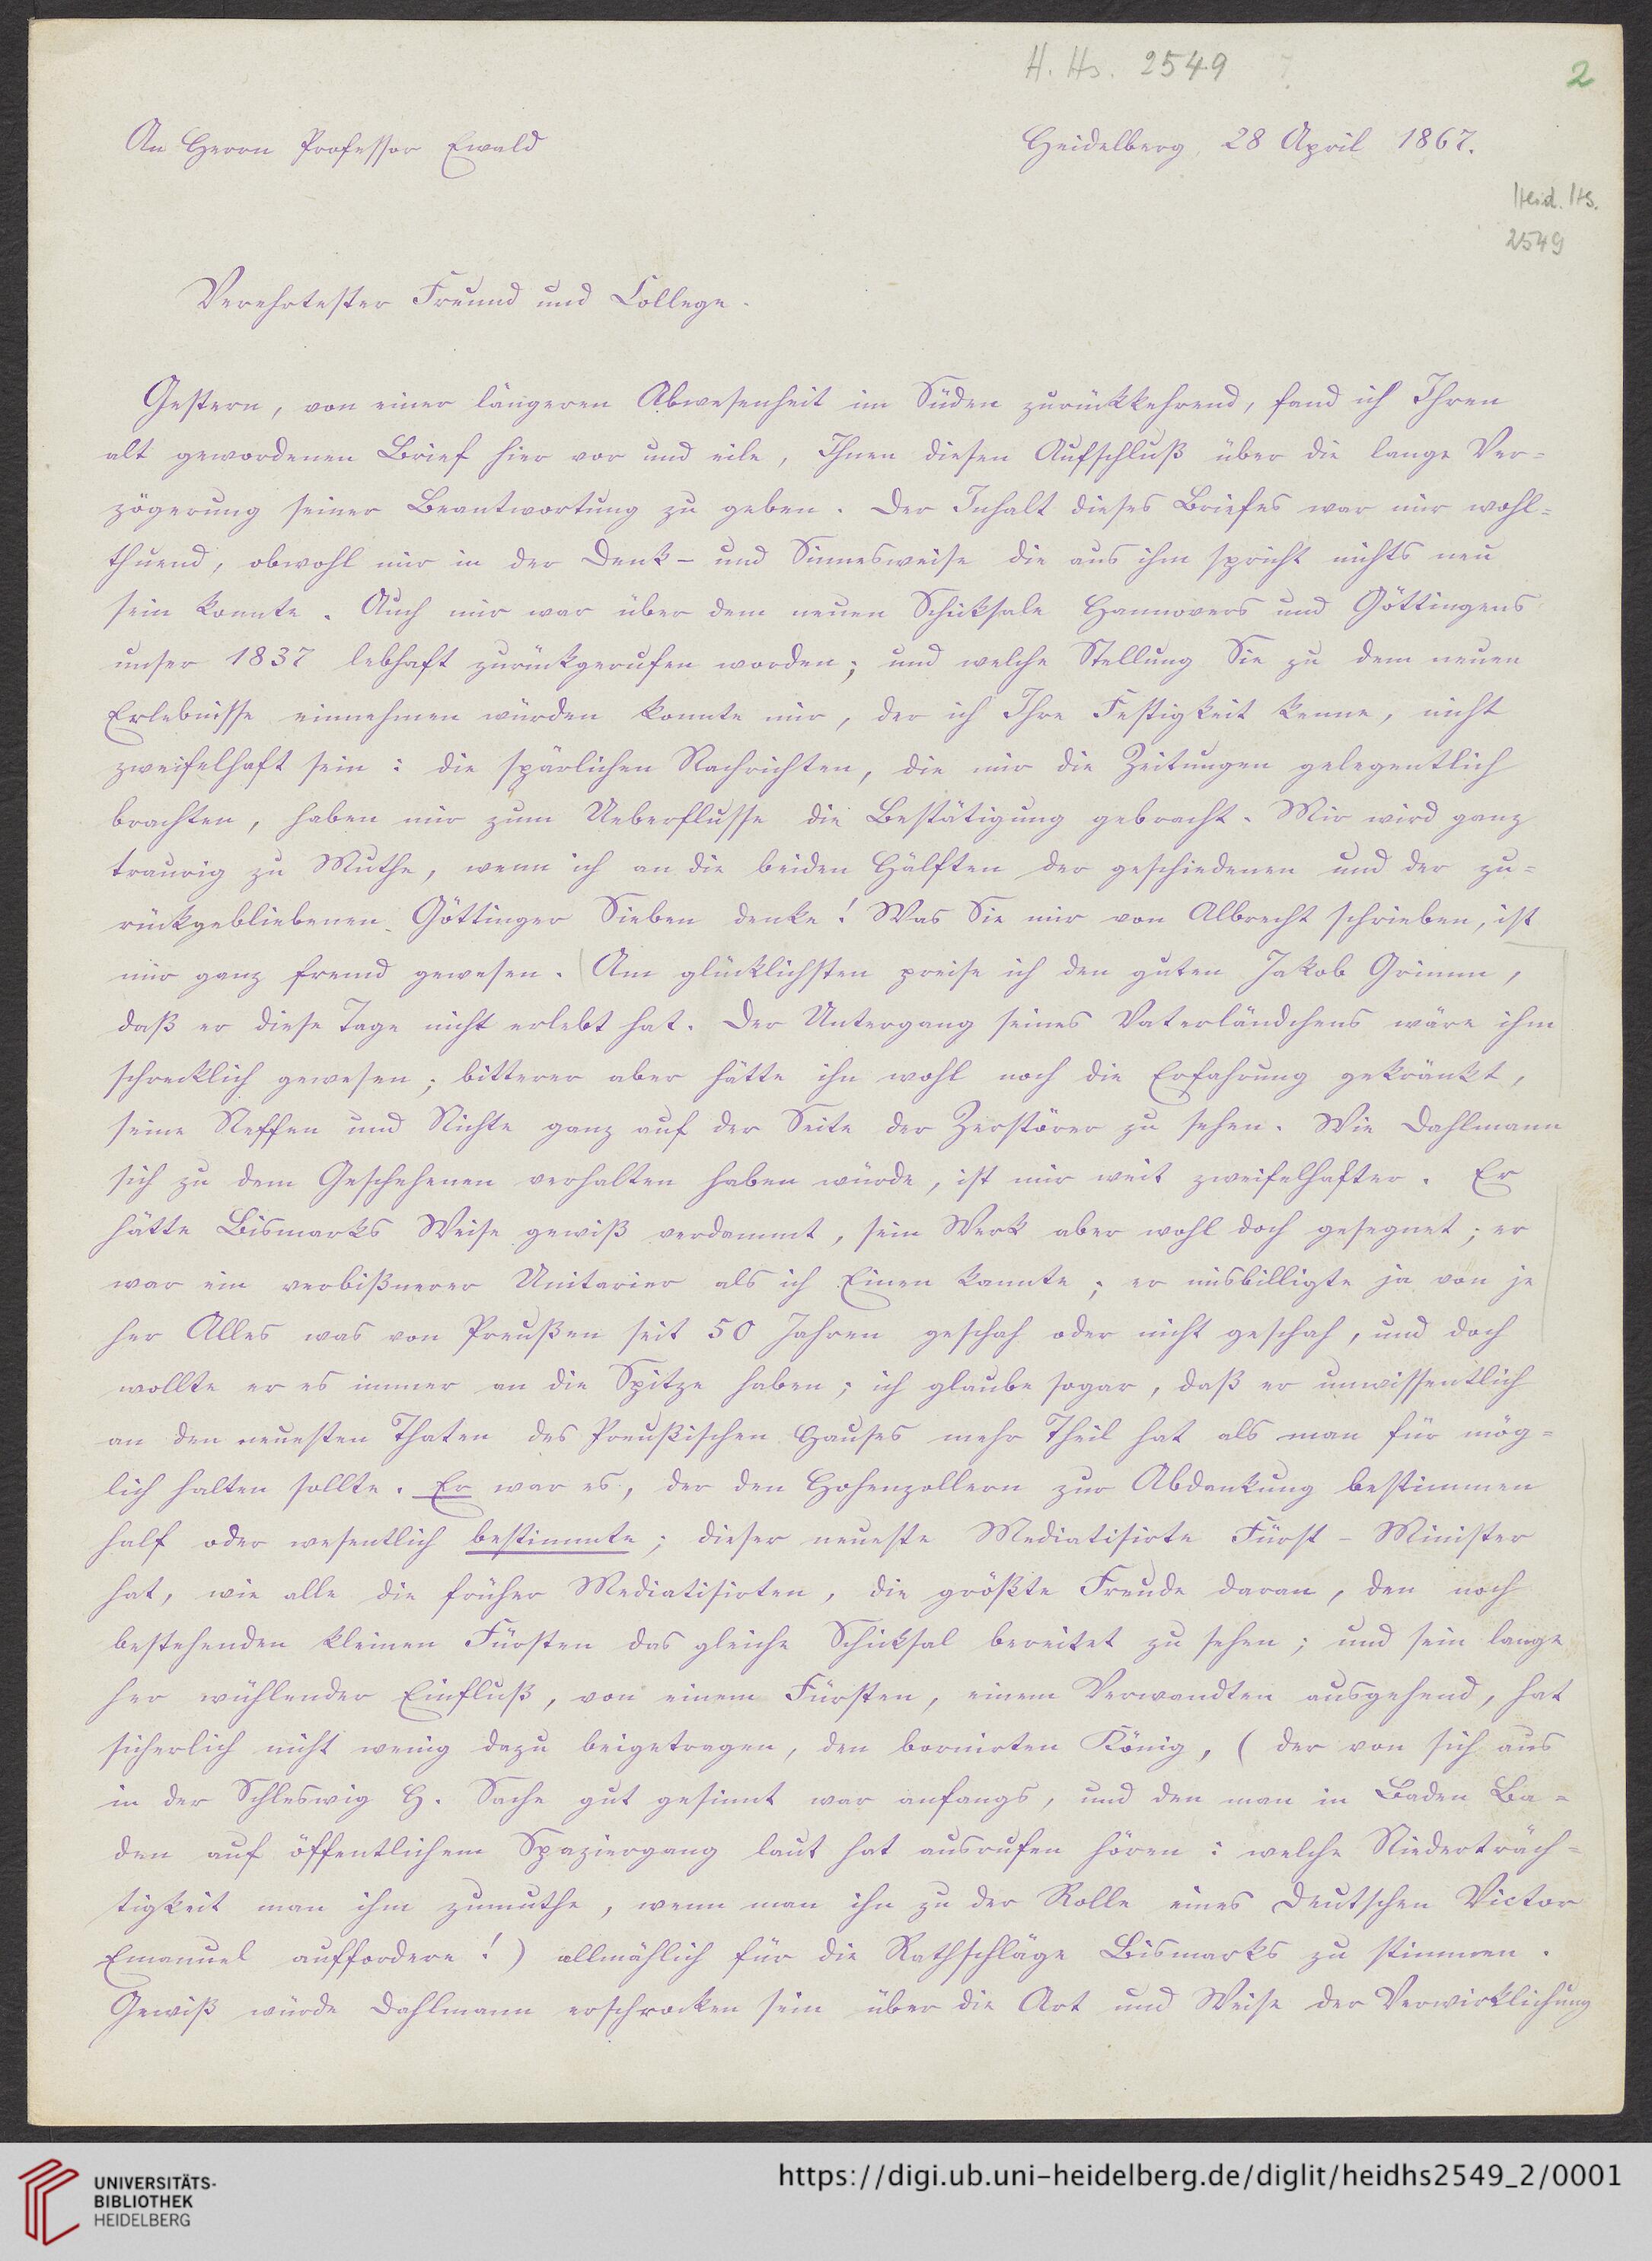 H. Hs. 2549
2
An Herrn Professor Ewald
Heidelberg, 28 April 1867.
Heid. Hs.
2549
Verehrtester Freund und College.
Gestern, von einer längeren Abwesenheit im Süden zurückkehrend, fand ich Ihren
alt gewordenen Brief hier vor und eile, Ihnen diesen Aufschluß über die lange Ver=
zögerung seiner Beantwortung zu geben. Der Inhalt dieses Briefes war mir wohl=
thuend, obwohl mir in der Denk- und Sinnesweise die aus ihm spricht nichts neu
sein konnte. Auch mir war über dem neuen Schicksale Hannovers und Göttingens
unser 1837 lebhaft zurückgerufen worden; und welche Stellung Sie zu dem neuen
Erlebnisse einnehmen würden konnte mir, der ich Ihre Festigkeit kenne, nicht
zweifelhaft sein: die spärlichen Nachrichten, die mir die Zeitungen gelegentlich
brachten, haben mir zum Ueberflusse die Bestätigung gebracht. Mir wird ganz
traurig zu Muthe, wenn ich an die beiden Hälften der geschiedenen und der zu=
rückgebliebenen Göttinger Sieben denke! Was Sie mir von Albrecht schrieben, ist
mir ganz fremd gewesen. Am glücklichsten preise ich den guten Jakob Grimm,
daß er diese Tage nicht erlebt hat. Der Untergang seines Vaterländchens wäre ihm
schrecklich gewesen; bitterer aber hätte ihn wohl noch die Erfahrung gekränkt,
seine Neffen und Nichte ganz auf der Seite der Zerstörer zu sehen. Wie Dahlmann
sich zu dem Geschehenen verhalten haben würde, ist mir weit zweifelhafter. Er
hätte Bismarks Weise gewiß verdammt, sein Werk aber wohl doch gesegnet; er
war ein verbißnerer Unitarier als ich Einen kannte; er misbilligte ja von je
her Alles was von Preußen seit 50 Jahren geschah oder nicht geschah, und doch
wollte er es immer an die Spitze haben; ich glaube sogar, daß er unwissentlich
an den neuesten Thaten des Preußischen Hauses mehr Theil hat als man für mög=
lich halten sollte. Er war es, der den Hohenzollern zur Abdankung bestimmen
half oder wesentlich bestimmte; dieser neueste Mediatisirte Fürst-Minister
hat, wie alle die früher Mediatisirten, die größte Freude daran, den noch
bestehenden kleinen Fürsten das gleiche Schicksal bereitet zu sehen; und sein lange
her wühlender Einfluß, von einem Fürsten, einem Verwandten ausgehend, hat
sicherlich nicht wenig dazu beigetragen, den bornirten König, (der von sich aus
in der Schleswig H. Sache gut gesinnt war anfangs, und den man in Baden Ba=
den auf öffentlichem Spaziergang laut hat ausrufen hören: welche Niederträch=
tigkeit man ihm zumuthe, wenn man ihn zu der Rolle eines Deutschen Victor
Emanuel auffordere!) allmählich für die Rathschläge Bismarks zu stimmen.
Gewiß würde Dahlmann erschrocken sein über die Art und Weise der Verwirklichung
UNIVERSITÄTS-
BIBLIOTHEK
HEIDELBERG
https://digi.ub.uni-heidelberg.de/diglit/heidhs2549_2/0001